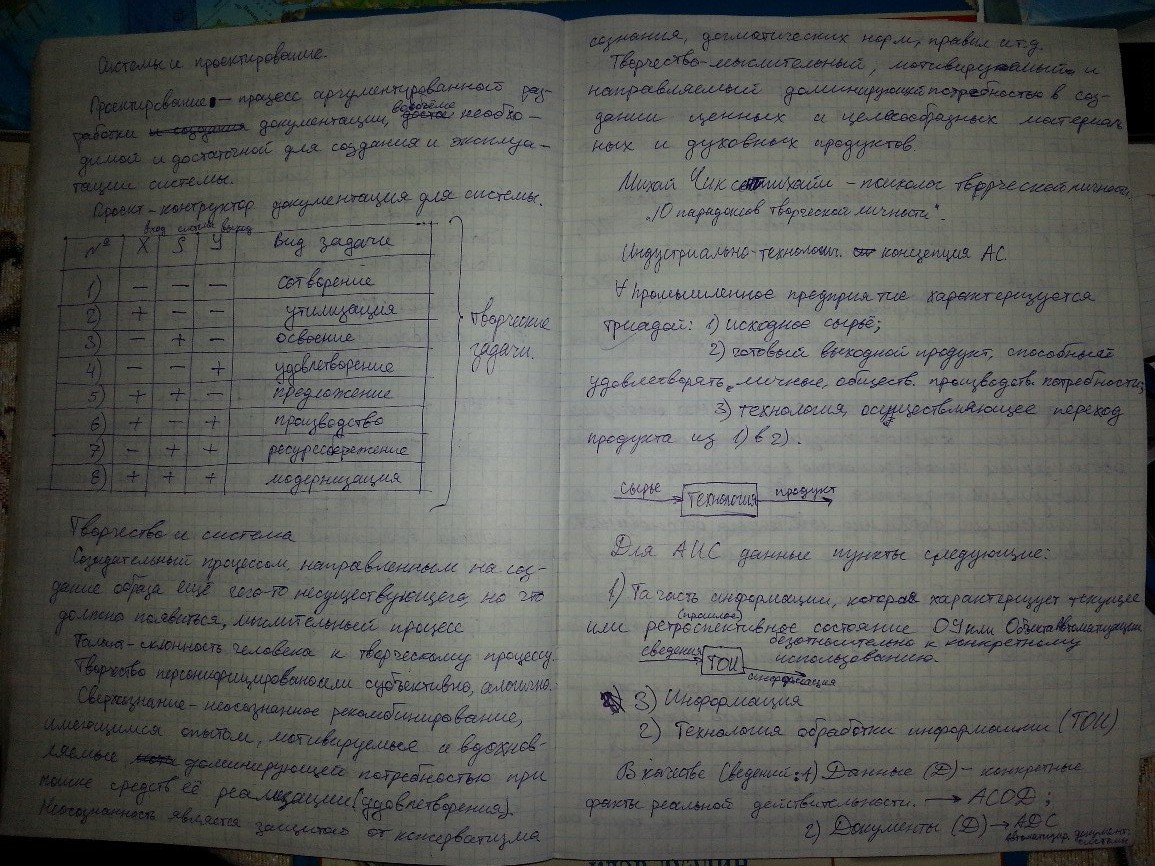 Системы и проектирование.
Проектирование – процесс аргументированной раз-
работки и создания документации, необхо-
димой и достаточной для создания и эксплуа-
тации системы.
Проект – контруктор документация для системы.
вход система выход
№ X S Y Вид задачи
1) – – – сотворение
2) + – – утилизация
3) – + – освоение
4) – – + удовлетворение
5) + + – предложение
6) + – + производство
7) – + + ресурсосбережение
8) + + + модернизация
Творческие
задачи.
Творчество и система
Созидательный процессом, направленным на соз-
дание образа ещё чего-то несуществующего, но что
должно появиться, мыслительный процесс
Талант – склонность человека к творческому процессу.
Творчество персонифицировано субъективно, алогично.
Сверхсознание – неосознанное рекомбинирование,
имеющимся опытом, мотивируемые и вдохнов-
ляемые доминирующей потребностью при
поиске средств её реализации (удовлетворения).
Неосознанность является защитою от консерватизма
сознания, догматических норм, правил и т.д.
Творчество – мыслительный, мотивируемый и
направляемый доминирующей потребностью в соз-
дании ценных и целесообразных материаль
ных и духовных продуктов.
Михай Чиксентмихайи – психолог творческой личности.
"10 парадоксов творческой личности".
Индустриально-технологич. концепция АС.
∀ промышленное предприятие характеризуется
триадой: 1) исходное сырьё;
2) готовый выходной продукт, способный
удовлетворять личные, обществ. производств. потребности;
3) технология, осуществляющее переход
продукта из 1) в 2).
сырье Технология продукт
Для АИС данные пункты следующие:
1) Та часть информации, которая характеризует текущее
или ретроспективное (прошлое) состояние ОУ или Объекта Автоматизации
безотносительно к конкретному
использованию.
сведения ТОИ информация
3) Информация
2) Технология обработки информации (ТОИ)
В качестве Сведений: 1) Данные (Д) – конкретные
факты реальной действительности. → АСОД;
2) Документы (D) → АДС
автоматизир. документ. системы